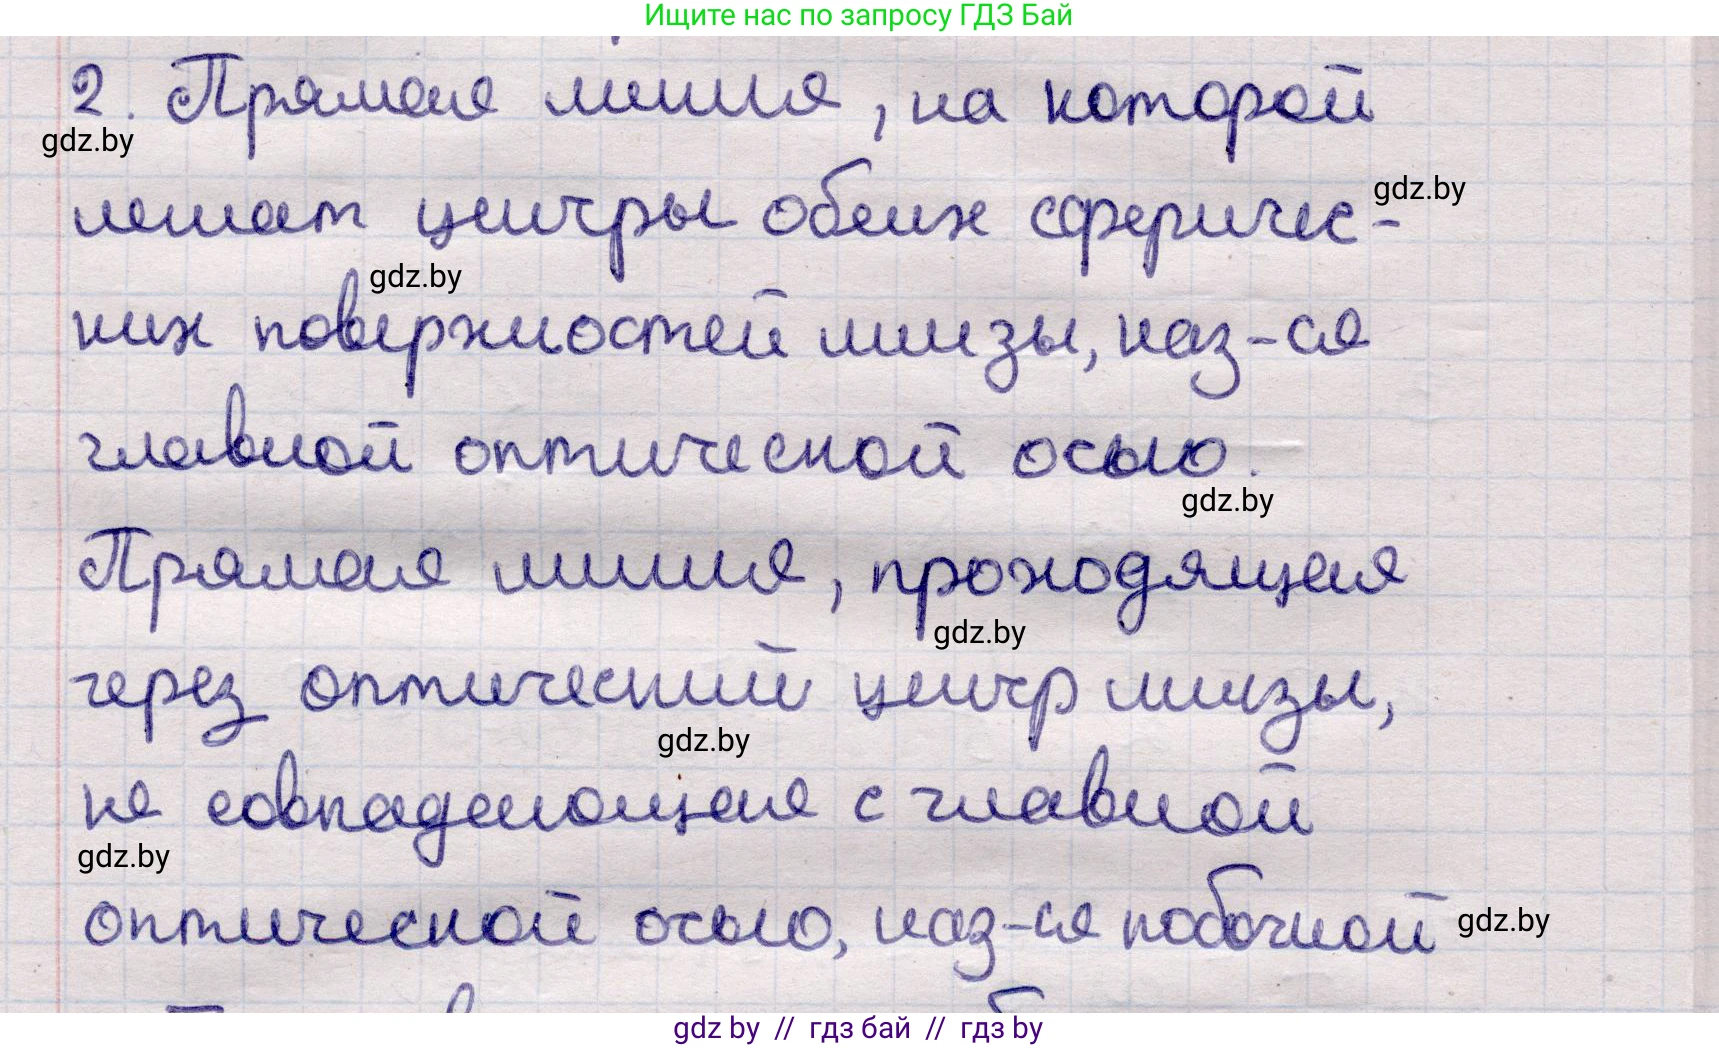 Ищите нас по запросу ГДЗ Бай
2. Прямая линия, на которой
gdz.by
лежат центры обеих сферичес-
gdz.by
gdz.by
ких поверхностей линзы, наз-ся
главной оптической осью.
gdz.by
Прямая линия, проходящая
gdz.by
через оптический центр линзы,
gdz.by
не совпадающая с главной
gdz.by
оптической осью, наз-ся побочной
gdz.by
gdz by // гдз бай // гдз by